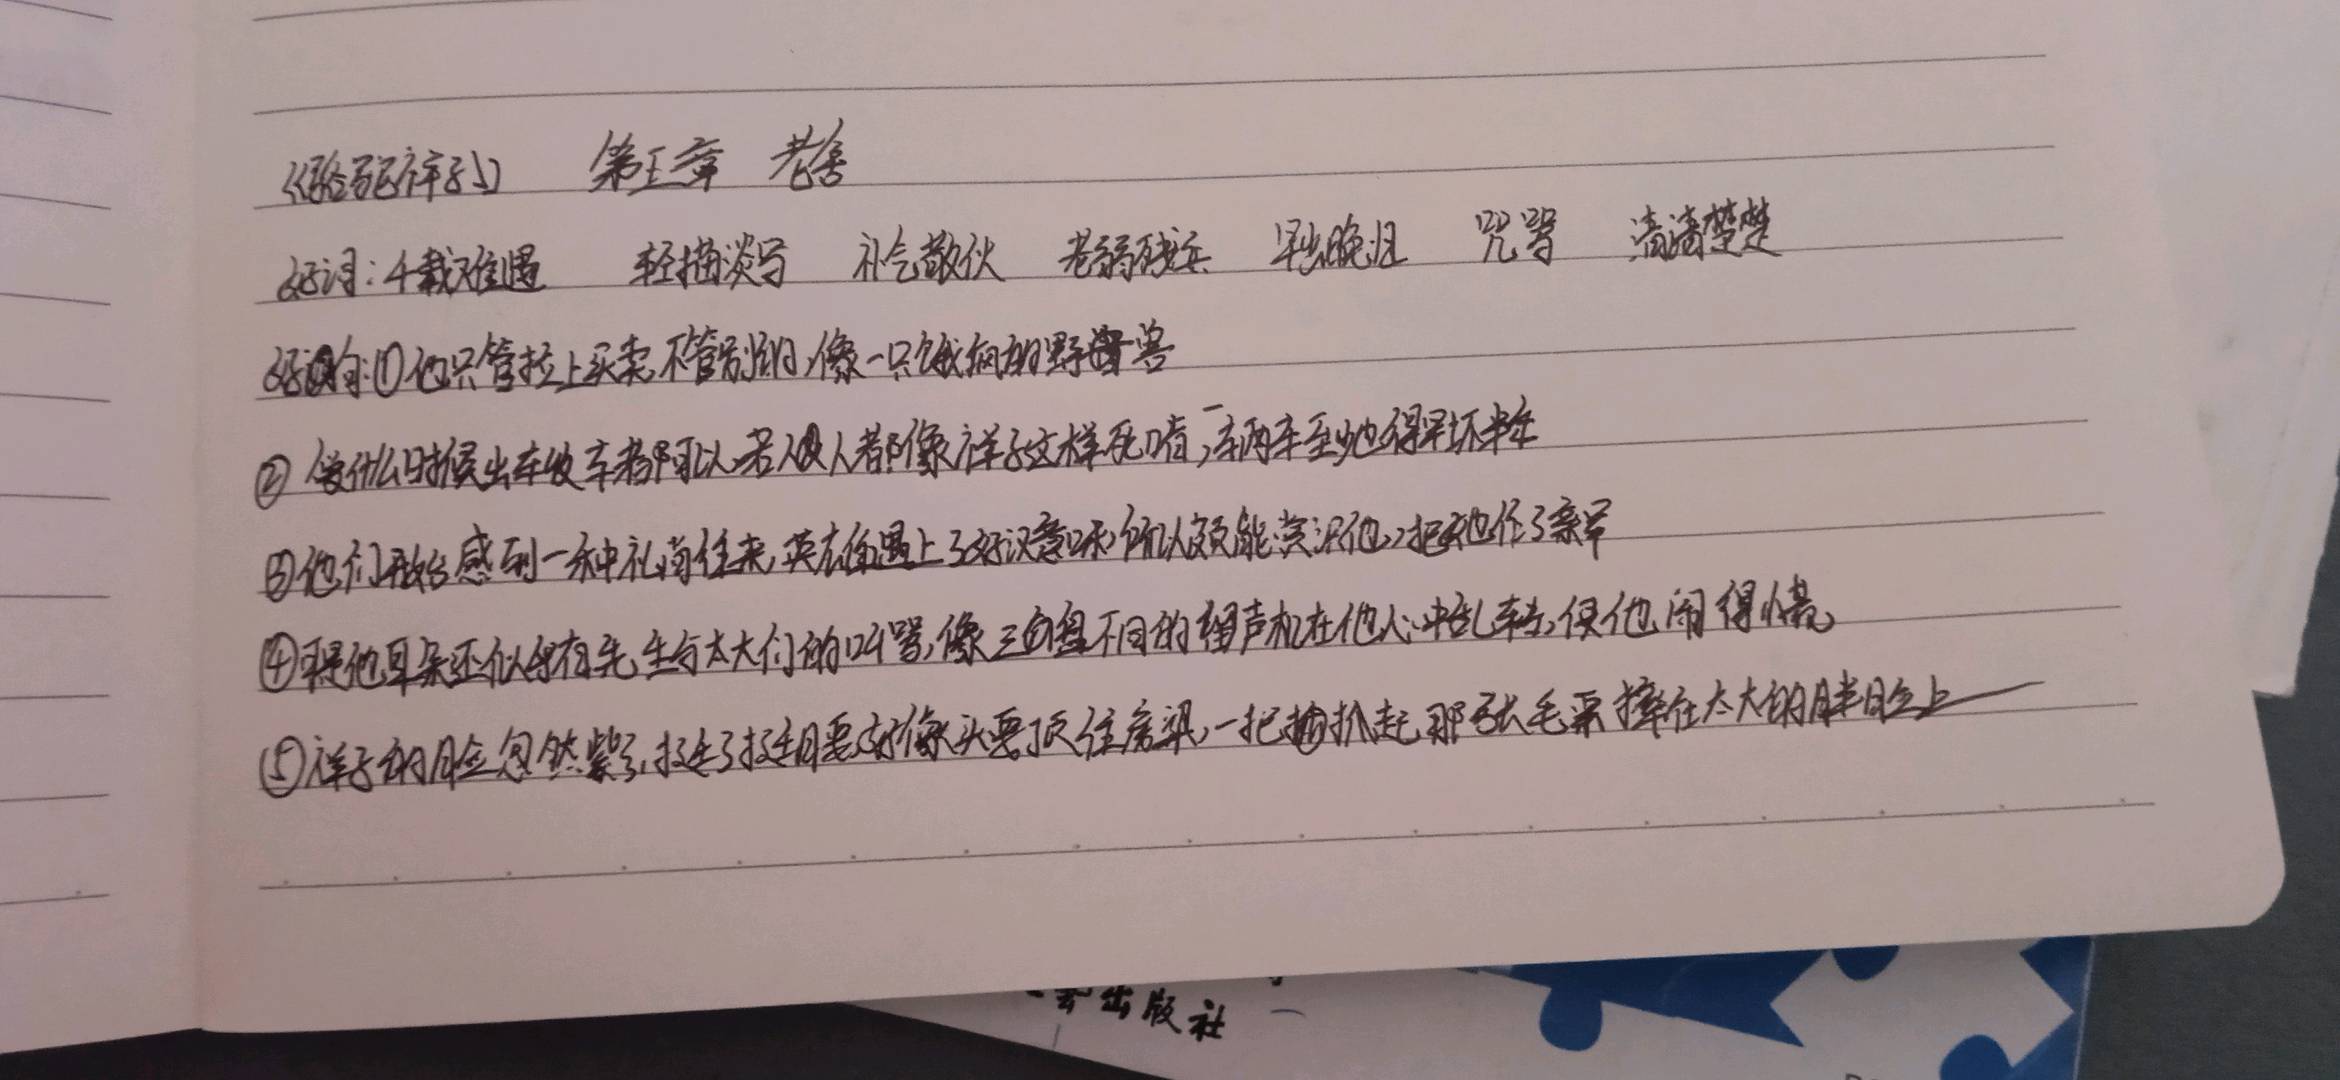 《骆驼祥子》 第五章 老舍
好词：千载难遇 轻描淡写 补气散火 老弱残兵 早出晚归 咒骂 清清楚楚
好句：①他只管拉上买卖,不管别的,像一只饿疯的野兽
② 什么时候出车收车都可以,若人人都像祥子这样死啃,一辆车至少也得早坏半年
③他们开始感到一种礼尚往来,英雄遇上了好汉意味,所以颇能赏识他,把他作了亲军
④可是他耳朵还似有先生与太太们的叫骂,像三盘不同的留声机在他心中乱转,使他闹得慌
⑤祥子的脸忽然紫了,挺了挺腰,好像头要顶住房梁,一把抓起那张毛票摔在太太的胖脸上
艺出版社